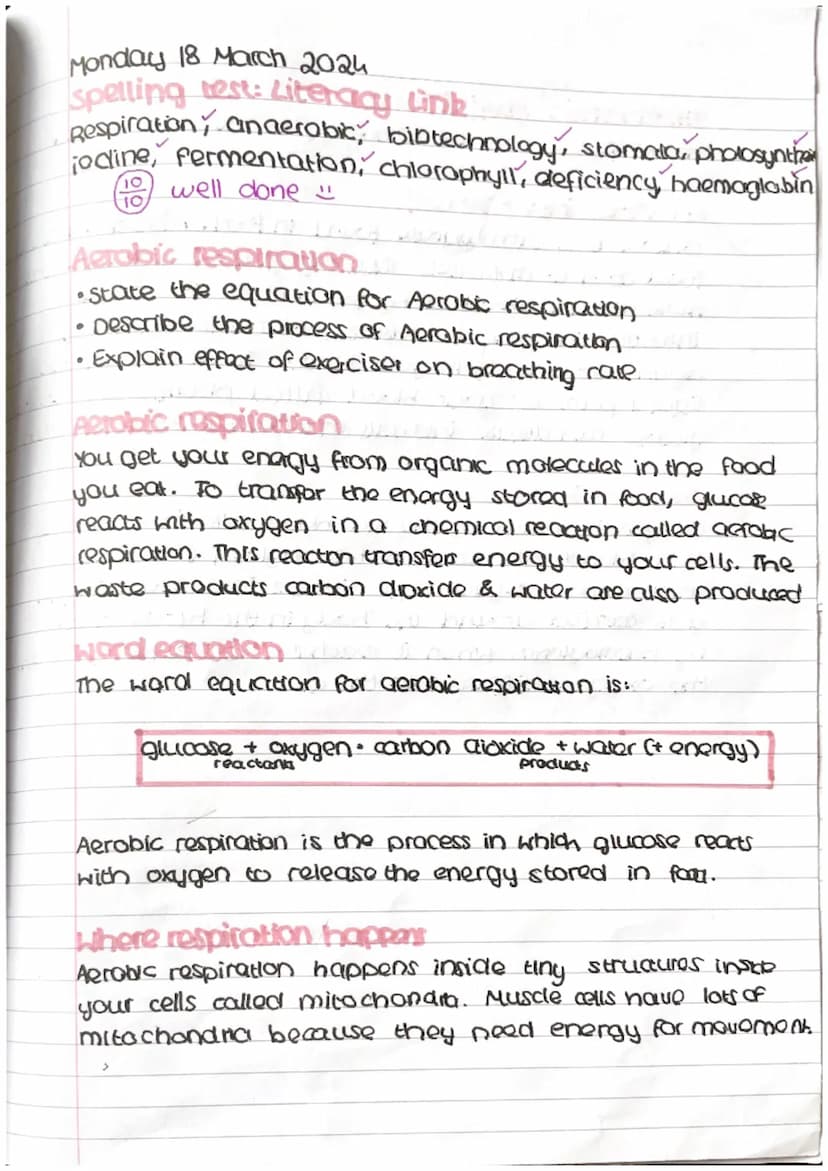 Monday 18 March 2024
Spelling test: Literacy Link
Respiration, anaerobic, biotechnology, stomata, photosynthe
iodine, fermentation, chlorophyll, deficiency, haemoglabin
10/10 well done
Aerobic respiration
• State the equation for Aerobic respiration
• Describe the process of Aerobic respiration
• Explain effect of exerciser on breathing rate.
Aerobic respiration
You get your energy from organic molecules in the food
you eat. To transfer the energy stored in food, glucose
reacts with oxygen in a chemical reaction called aerobic
respiration. This reacton transfers energy to your cells. The
waste products carbon dioxide & water are also produced
Word equation
The word equation for aerobic respiration is:
glucose + oxygen • carbon dioxide + water (+ energy)
reactants products
Aerobic respiration is the process in which glucose reacts
with oxygen to release the energy stored in food.
Where respiration happens
Aerobic respiration happens inside tiny structures inside
your cells called mitochondria. Muscle cells have lots of
mitochondria because they need energy for movement.